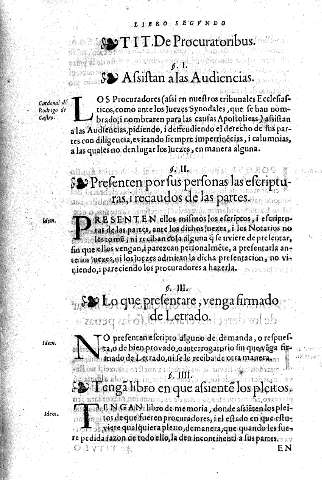 LIBRO SEGVNDO
TIT. De Procuratoribus.
§. I.
Assistan a las Audiencias.
Cardenal dō
Rodrigo de
Castro.
LOS Procuradores (assi en nuestros tribunales Ecclesias-
ticos, como ante los Juezes Synodales, que se han nom-
brado; i nombraren para las causas Apostolicas) assistan
a las Audiencias, pidiendo, i deffendiendo el derecho de sus par-
tes con diligencia, evitando siempre impertinēcias, i calumnias,
a las quales no den lugar los juezes, en manera alguna.
§. II.
Presenten por sus personas las escriptu-
ras, i recaudos de las partes.
Idem.
PRESENTEN ellos mismos los escriptos, i escriptu-
ras de las partes, ante los dichos juezes, i los Notarios no
los tomē, ni reciban cosa alguna q̄ se uviere de presentar,
sin que ellos vengan, i parezcan personalmēte, a presentarla an-
te los juezes, ni los juezes admitan la dicha presentacion, no vi-
niendo, i pareciendo los procuradores a hazerla.
§. III.
Lo que presentare, venga firmado
de Letrado.
Idem.
NO presenten escripto alguno de demanda, o respues-
ta, o de bien provado, o autorrogatorio sin que vēga fir-
mado de Letrado, ni se le reciba de otra manera.
§. IIII.
Tengā libro en que asientē los pleitos.
Idem.
TENGAN libro de memoria, donde assienten los plei-
tos de que fueren procuradores, i el estado en que estu-
viere qualquiera pleito, de manera, que quando les fue-
re pedida razon de todo ello, la den incontinenti a sus partes.
EN